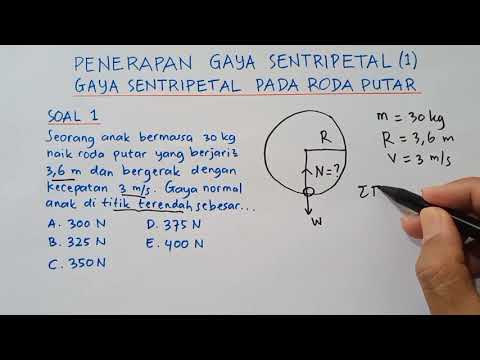 PENERAPAN GAYA SENTRIPETAL (1)
GAYA SENTRIPETAL PADA RODA PUTAR
SOAL 1
Seorang anak bermassa 30 kg
naik roda putar yang berjari²
3,6 m dan bergerak dengan
kecepatan 3 m/s. Gaya normal
anak di titik terendah sebesar...
A. 300 N
D. 375 N
B. 325 N
E. 400 N
C. 350 N
R
N=?
W
m = 30 kg
R = 3,6 m
V = 3 m/s